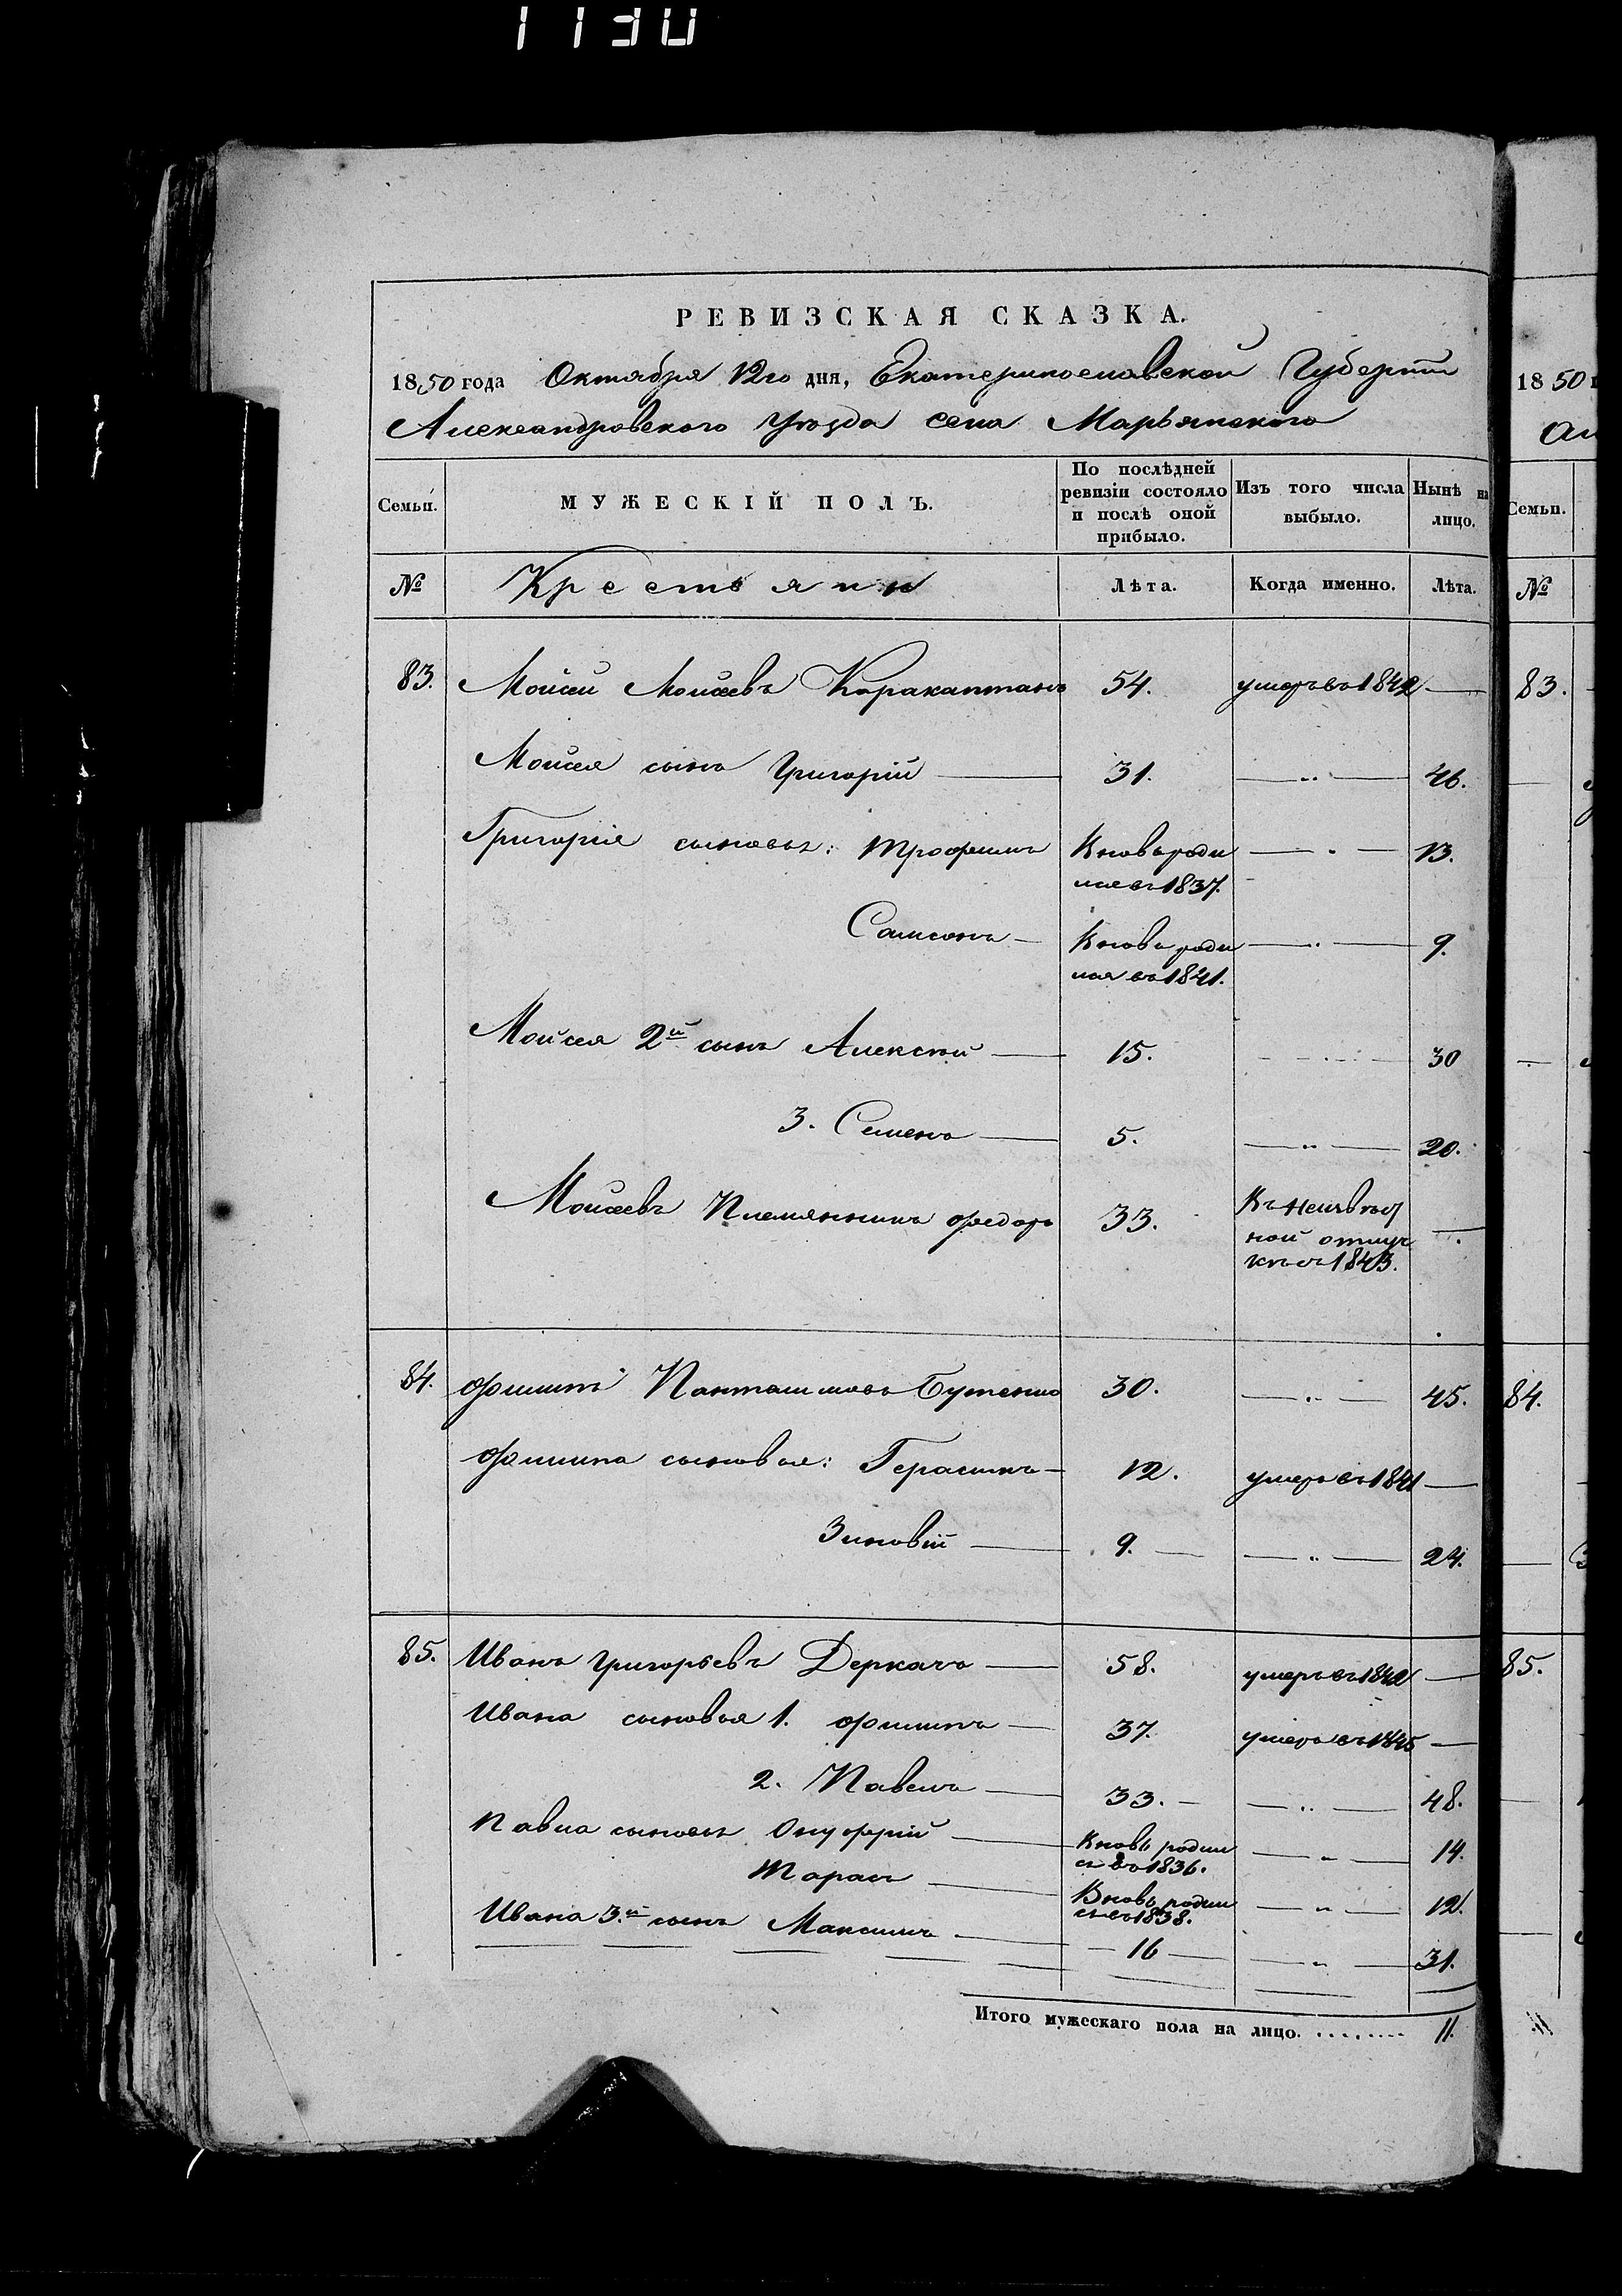 1130
РЕВИЗСКАЯ СКАЗКА.
1850 года Октября 12го дня, Екатеринославской Губерніи
Александровского Уѣзда села Марьянского
Семьи. МУЖЕСКІЙ ПОЛЪ. По послѣдней ревизіи состояло и послѣ оной прибыло. Изъ того числа выбыло. Нынѣ на лицо.
№ Крестьяни Лѣта. Когда именно. Лѣта.
83. Мойсей Мойсеевъ Каракаптанъ 54. умеръ въ 1842 —
Мойсея сынъ Григорій — 31. — „ — 46.
Григорія сыновья: Трофимъ Вновь роди — „ — 13.
лся въ 1837.
Самсонъ — Вновь роди — „ — 9.
лся въ 1841.
Мойсея 2й сынъ Алексѣй — 15. — „ — 30
3. Семенъ — 5. — „ — 20.
Мойсеевъ Племянникъ Федоръ 33. Въ неизвѣст
ной отлуч
кѣ съ 1843.
84. Филипъ Пантелимоновъ Бутенко 30. — „ — 45.
Филипа сыновья: Герасимъ — 12. умеръ въ 1841 —
Зиновій — 9. — — „ — 24.
85. Иванъ Григорьевъ Деркачъ — 58. умеръ въ 1842 —
Ивана сыновья 1. Филипъ — 37. умеръ въ 1845 —
2. Павелъ — 33. — — „ — 48.
Павла сыновья Онуфрій — Вновь родил — „ — 14.
ся въ 1836.
Тарасъ — Вновь родил — „ — 12.
ся въ 1838.
Ивана 3й сынъ Максимъ — 16 — — „ — 31.
Итого мужескаго пола на лицо. ........ 11.
1850
Ал
Семьи.
№
83.
84.
85.